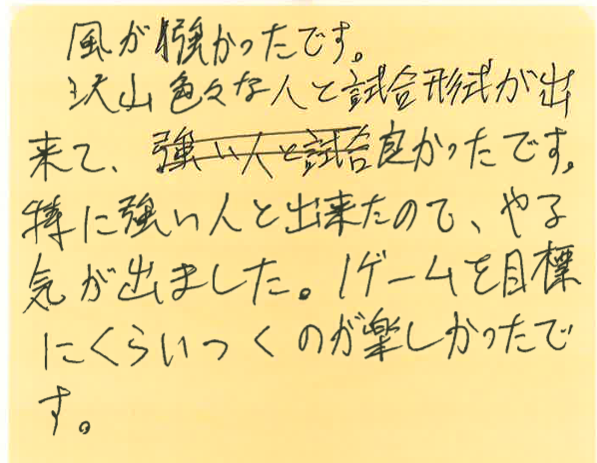 風が強かったです。
沢山色々な人と試合形式が出
来て、強い人と試合良かったです。
特に強い人と出来たので、やる
気が出ました。1ゲームを目標
にくらいつくのが楽しかったで
す。